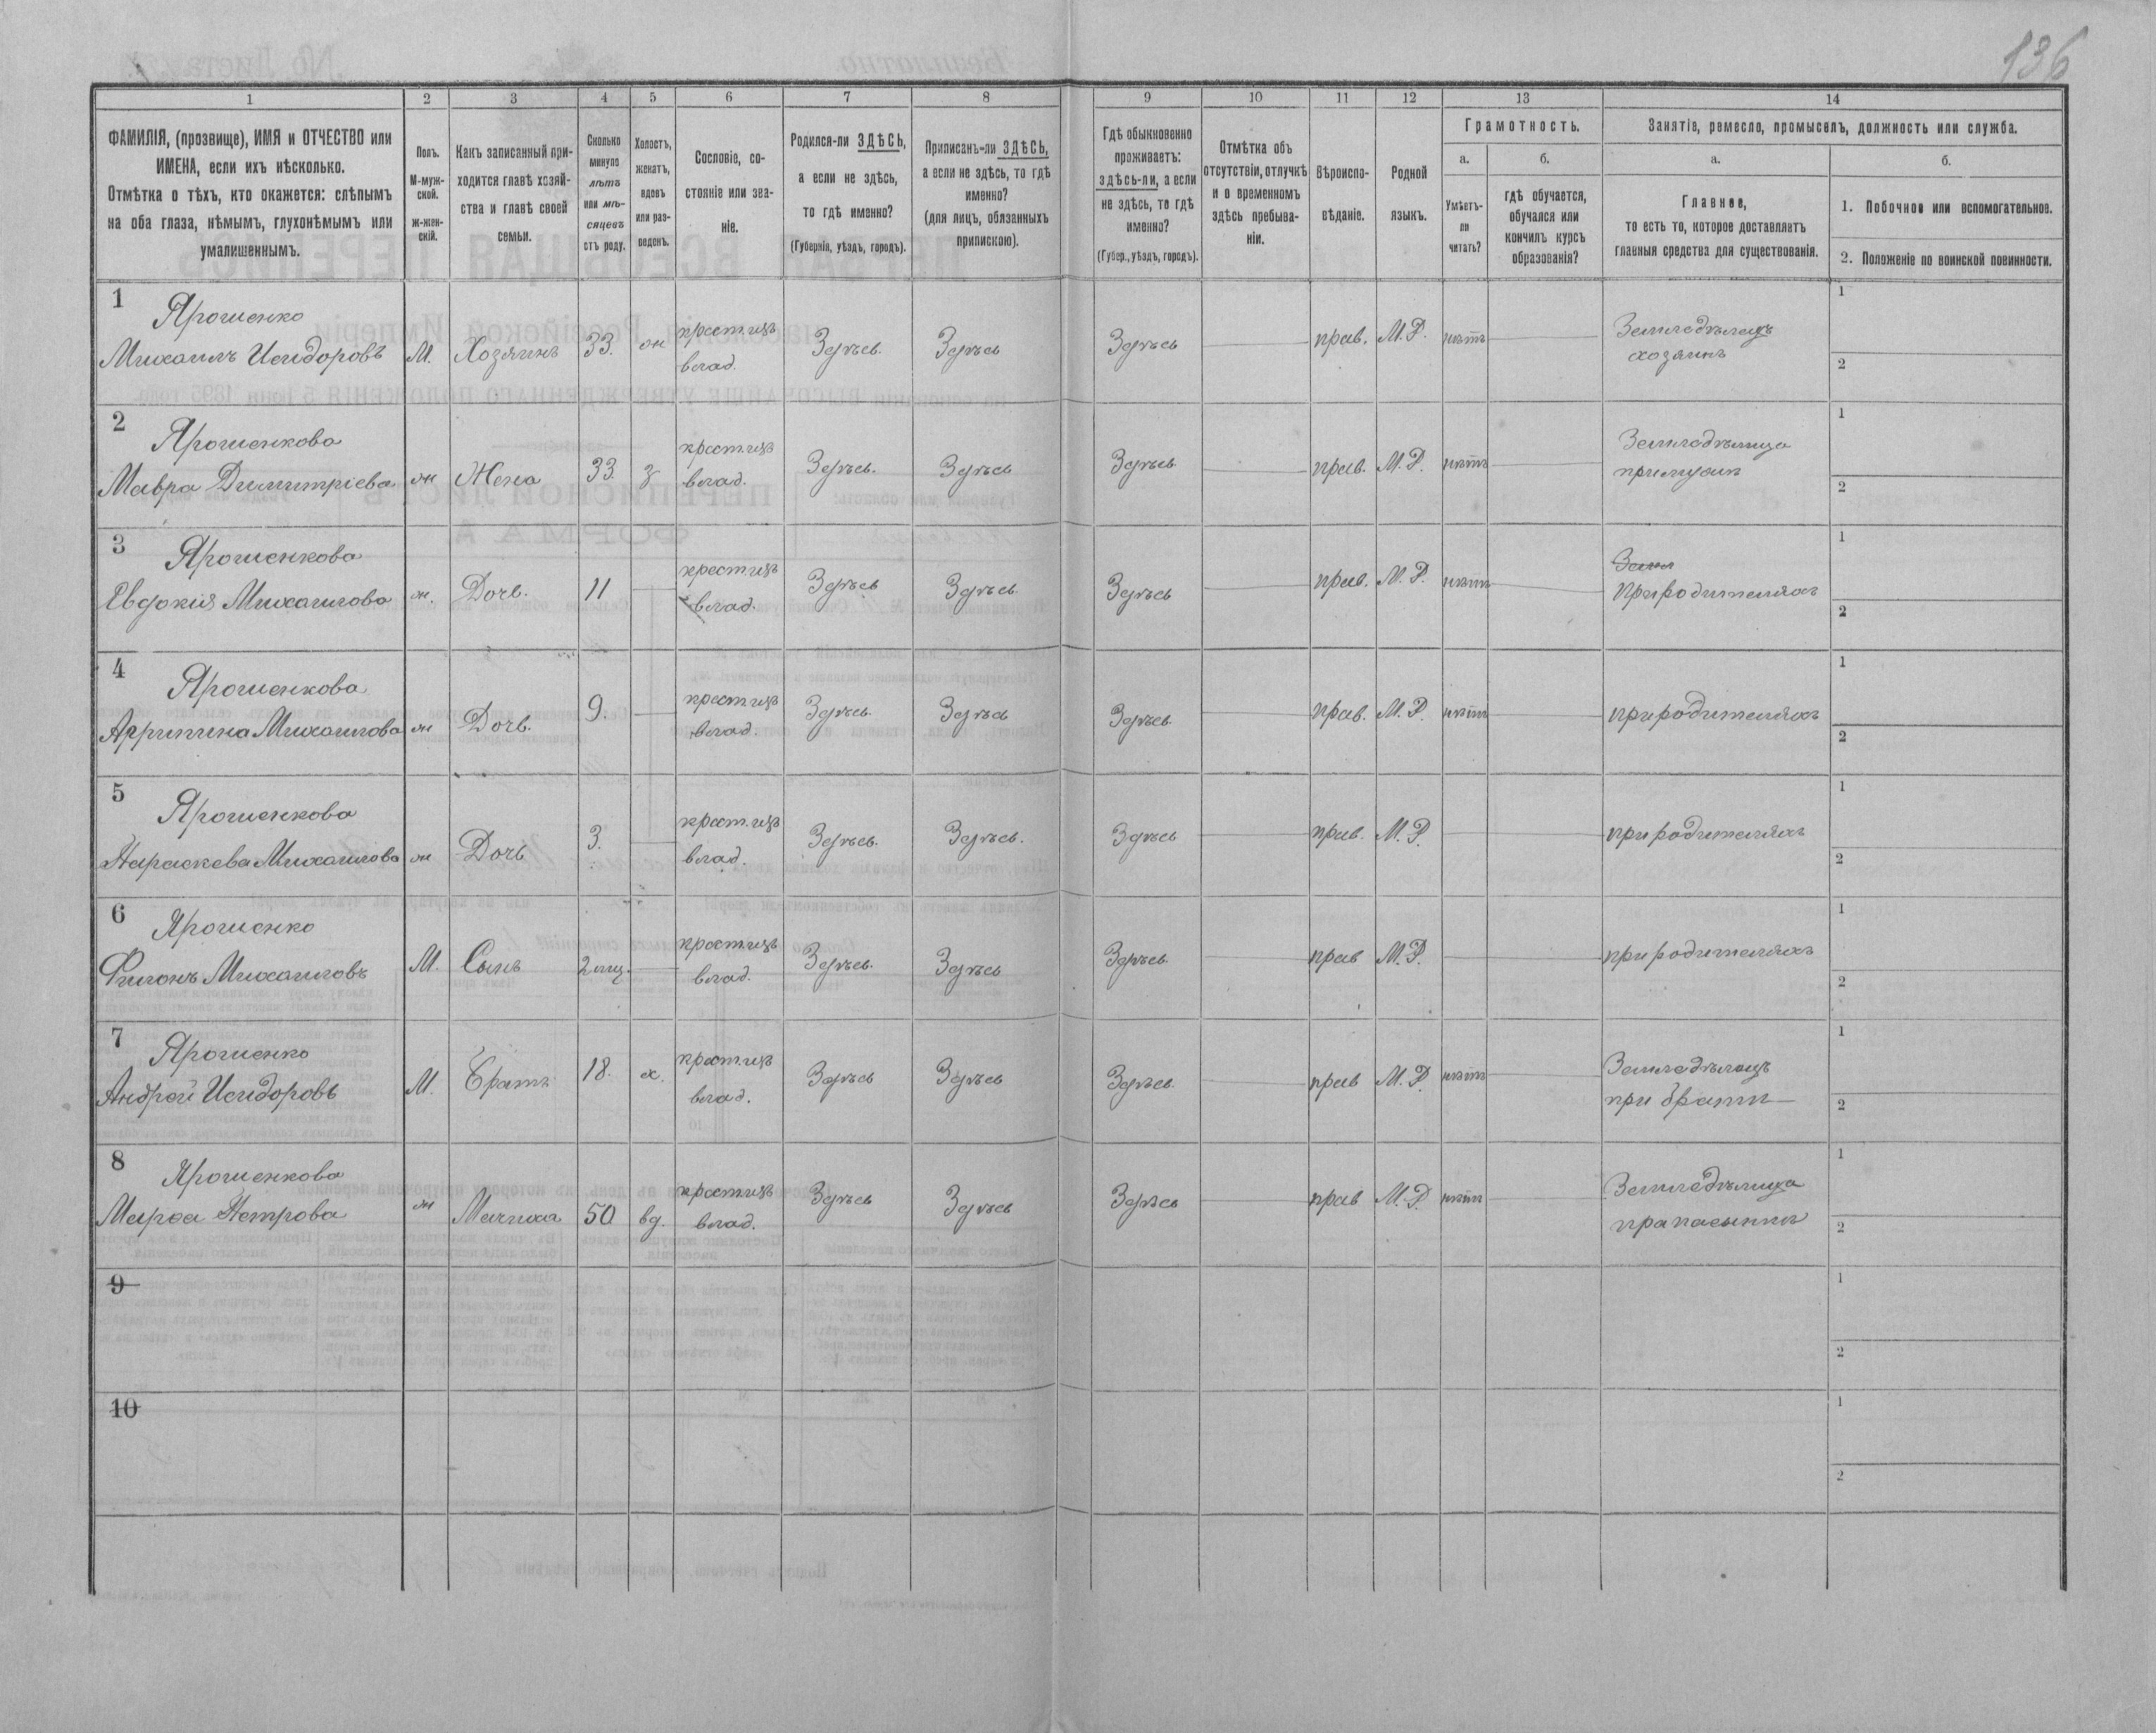 136
1 2 3 4 5 6 7 8 9 10 11 12 13 14
ФАМИЛІЯ, (прозвище), ИМЯ и ОТЧЕСТВО или
ИМЕНА, если ихъ нѣсколько.
Отмѣтка о тѣхъ, кто окажется: слѣпымъ
на оба глаза, нѣмымъ, глухонѣмымъ или
умалишеннымъ.
Полъ.
М-муж-
ской.
ж-жен-
скій.
Какъ записанный при-
ходится главѣ хозяй-
ства и главѣ своей
семьи.
Сколько
минуло
лѣтъ
или мѣ-
сяцевъ
отъ роду.
Холостъ,
женатъ,
вдовъ
или раз-
веденъ.
Сословіе, со-
стояніе или зва-
ніе.
Родился-ли ЗДѢСЬ,
а если не здѣсь,
то гдѣ именно?
(Губернія, уѣздъ, городъ).
Приписанъ-ли ЗДѢСЬ,
а если не здѣсь, то гдѣ
именно?
(для лицъ, обязанныхъ
припискою).
Гдѣ обыкновенно
проживаетъ:
здѣсь-ли, а если
не здѣсь, то гдѣ
именно?
(Губер., уѣздъ, городъ).
Отмѣтка объ
отсутствіи, отлучкѣ
и о временномъ
здѣсь пребыва-
ніи.
Вѣроиспо-
вѣданіе.
Родной
языкъ.
Грамотность.
а.
Умѣетъ-
ли
читать?
б.
гдѣ обучается,
обучался или
кончилъ курсъ
образованія?
Занятіе, ремесло, промыселъ, должность или служба.
а.
Главное,
то есть то, которое доставляетъ
главныя средства для существованія.
б.
1. Побочное или вспомогательное.
2. Положеніе по воинской повинности.
1
Ярошенко
Михаилъ Исидоровъ М. Хозяинъ 33. ж крест. изъ
влад. Здѣсь. Здѣсь Здѣсь прав. М.Р. нѣтъ Земледѣлецъ
хозяинъ
1
2
2
Ярошенкова
Мавра Димитріева ж Жена 33. з крест. изъ
влад. Здѣсь. Здѣсь Здѣсь прав. М.Р. нѣтъ Земледѣлица
при мужѣ
1
2
3
Ярошенкова
Евдокия Михаилова ж. Дочь. 11 крест. изъ
влад. Здѣсь Здѣсь Здѣсь прав. М.Р. нѣтъ Земл
При родителяхъ
1
2
4
Ярошенкова
Агрипина Михаилова ж Дочь. 9. крест. изъ
влад. Здѣсь. Здѣсь Здѣсь прав. М.Р. нѣтъ при родителяхъ
1
2
5
Ярошенкова
Параскева Михаилова ж Дочь 3. крест. изъ
влад. Здѣсь. Здѣсь. Здѣсь прав. М.Р. при родителяхъ
1
2
6
Ярошенко
Михаиловъ М. Сынъ 2 мц. крест. изъ
влад. Здѣсь. Здѣсь Здѣсь прав М.Р. при родителяхъ
1
2
7
Ярошенко
Андрей Исидоровъ М. Братъ 18. х. крест. изъ
влад. Здѣсь Здѣсь Здѣсь прав М.Р. нѣтъ Земледѣлецъ
при братѣ
1
2
8
Ярошенкова
Марѳа Петрова ж Мачиха 50 вд. крест. изъ
влад. Здѣсь Здѣсь Здѣсь прав М.Р. нѣтъ Земледѣлица
при пасынкѣ
1
2
9
1
2
10
1
2